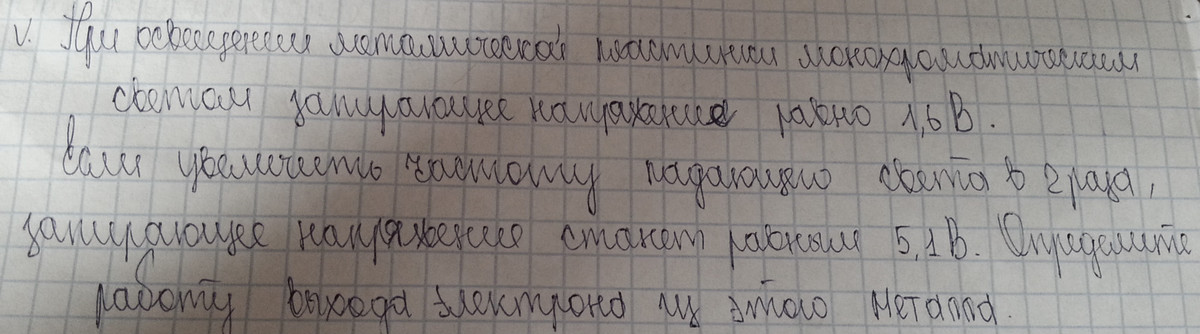 V. При освещении металлической пластинки монохроматическим
светом запирающее напряжение равно 1,6 В.
Если увеличить частоту падающего света в 2 раза,
запирающее напряжение станет равным 5,1 В. Определите
работу выхода электрона из этого металла.